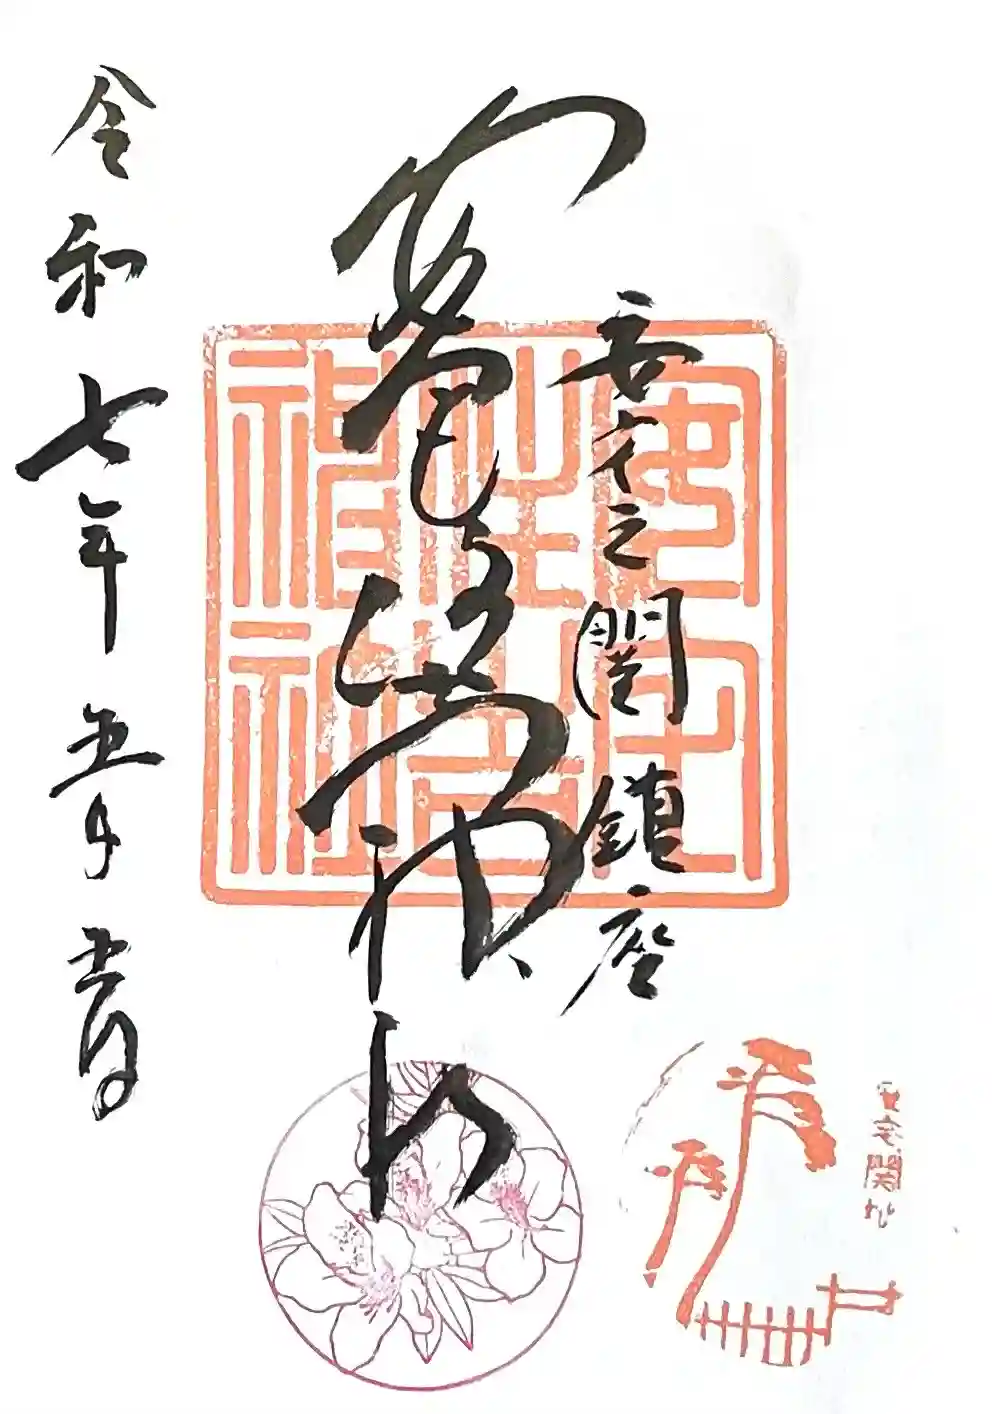 安宅之関鎮座
安宅住吉神社
令和七年五月
安宅住吉神社
安宅関址